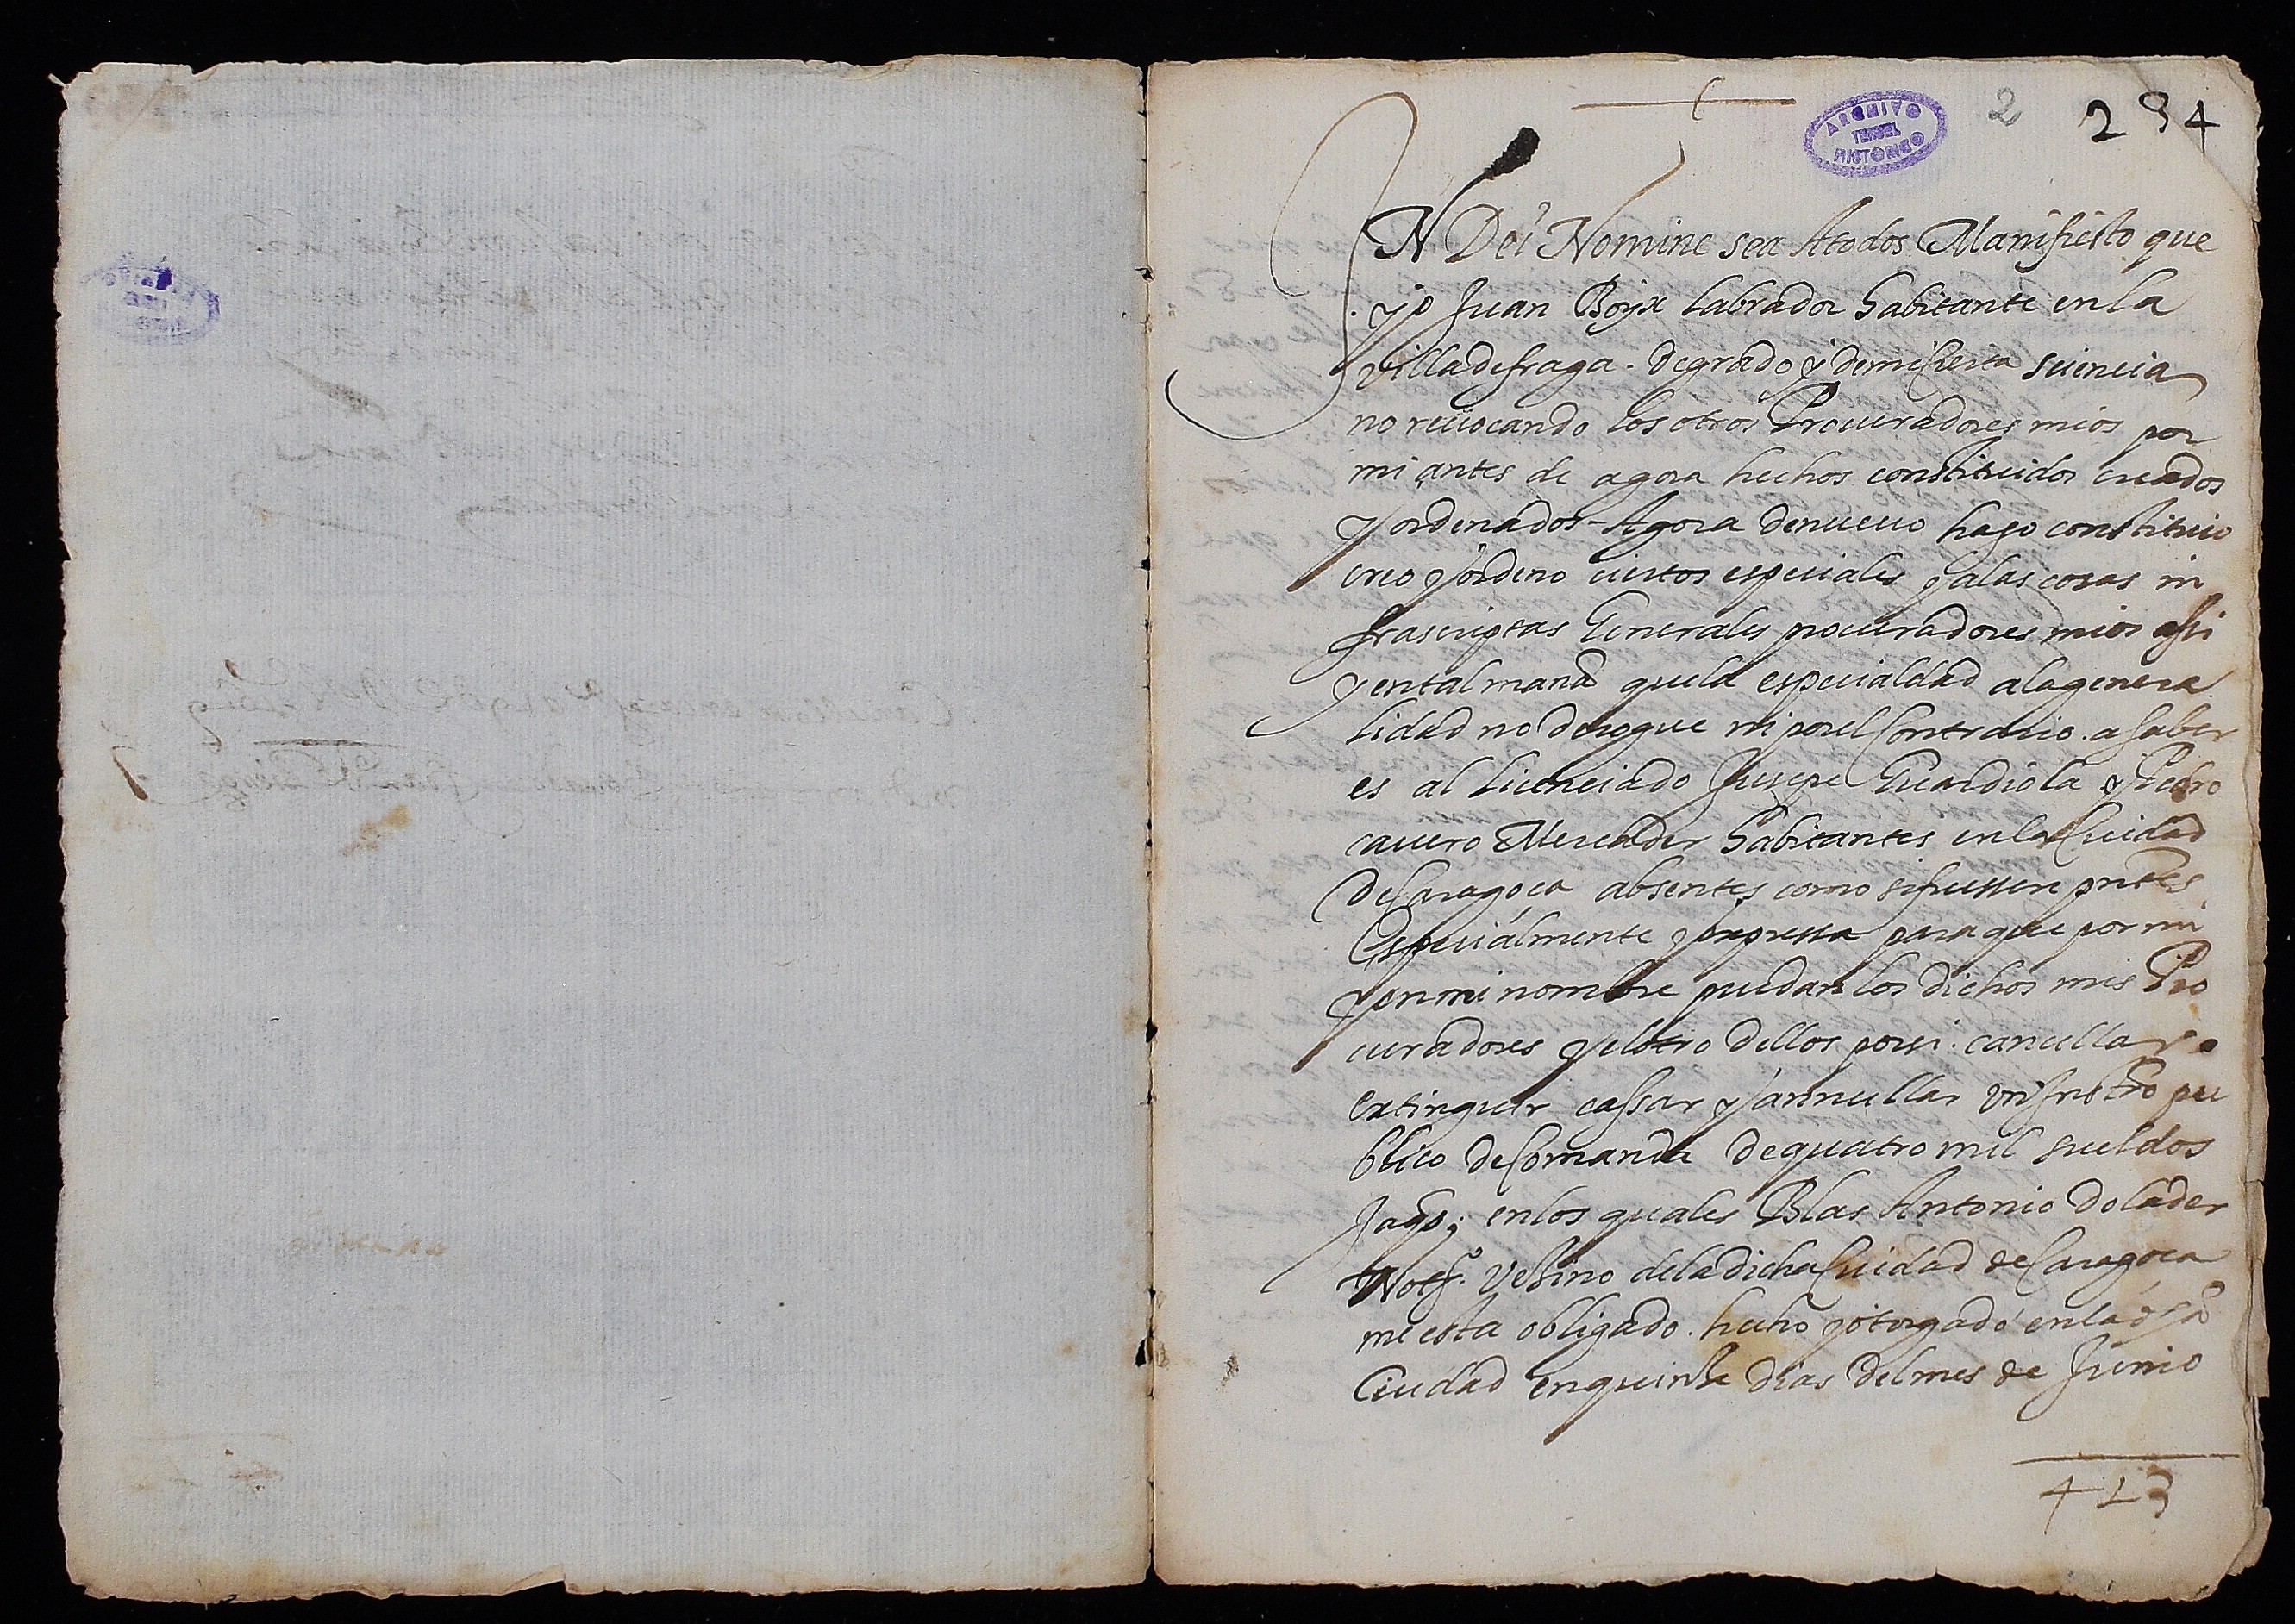 ARCHIVO
TERUEL
HISTORICO
2
234
IN Dei Nomine sea Atodos Manifiesto que
yo Juan Boyx labrador habitante en la
villa de fraga. de grado y de mi Cierta sciencia
no reuocando los otros Procuradores mios por
mi antes de agora hechos constituidos creados
y ordenados - Agora de nueuo hago constituio
creo y ordeno ciertos especiales y a las cosas in
frascriptas Generales procuradores mios assi
y en tal mana que la especialdad a la genera
lidad no derogue ni por el Contrario. a saber
es al licenciado Jusepe Guardiola y Pedro
cauero Mercader habitantes en la Ciudad
de Caragoca absentes como si fuessen pntes
Especialmente y expressa para que por mi
y en mi nombre puedan los dichos mis Pro
curadores y el otro dellos por si. cancellar
extinguir cassar y annullar un instro pu
blico de Comanda de quatro mil sueldos
Jaqs; en los quales Blas Antonio dolader
Notº. Vesino de la dicha Ciudad de Caragoca
me esta obligado. hecho y otorgado en la dha
Ciudad en quinse dias del mes de Junio
423